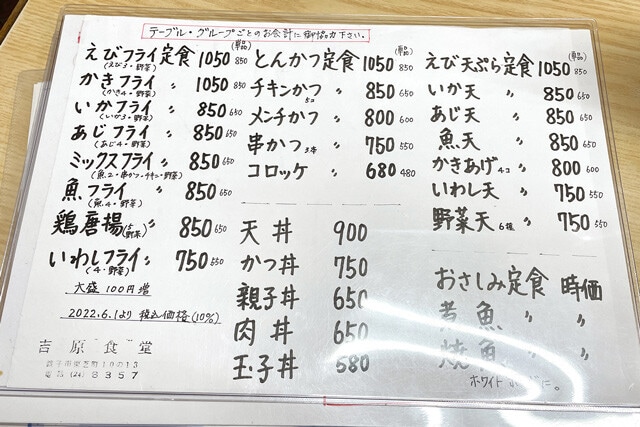 テーブル・グループごとのお会計に御協力下さい。
(単品)
えびフライ定食 1050 850
(えび3・野菜)
かきフライ 〃 1050 850
(かき4・野菜)
いかフライ 〃 850 650
(いか3・野菜)
あじフライ 〃 850 650
(あじ4・野菜)
ミックスフライ 〃 850 650
(魚2・串かつ・チキン・野菜)
魚フライ 〃 850 650
(魚4・野菜)
鶏唐揚 〃 850 650
いわしフライ 〃 750 550
(4・野菜)
大盛 100円増
2022.6.1より 税込価格(10%)
吉原食堂
電話(24)8357
(単品)
とんかつ定食 1050 850
チキンかつ 〃 850 650
メンチかつ 〃 800 600
串かつ 3本 〃 750 550
コロッケ 〃 680 480
天丼 900
かつ丼 750
親子丼 650
肉丼 650
玉子丼 580
(単品)
えび天ぷら定食 1050 850
いか天 〃 850 650
あじ天 〃 850 650
魚天 〃 850 650
かきあげ 4コ 〃 800 600
いわし天 〃 750 550
野菜天 6種 〃 750 550
おさしみ定食 時価
煮魚 〃 〃
焼魚 〃 〃